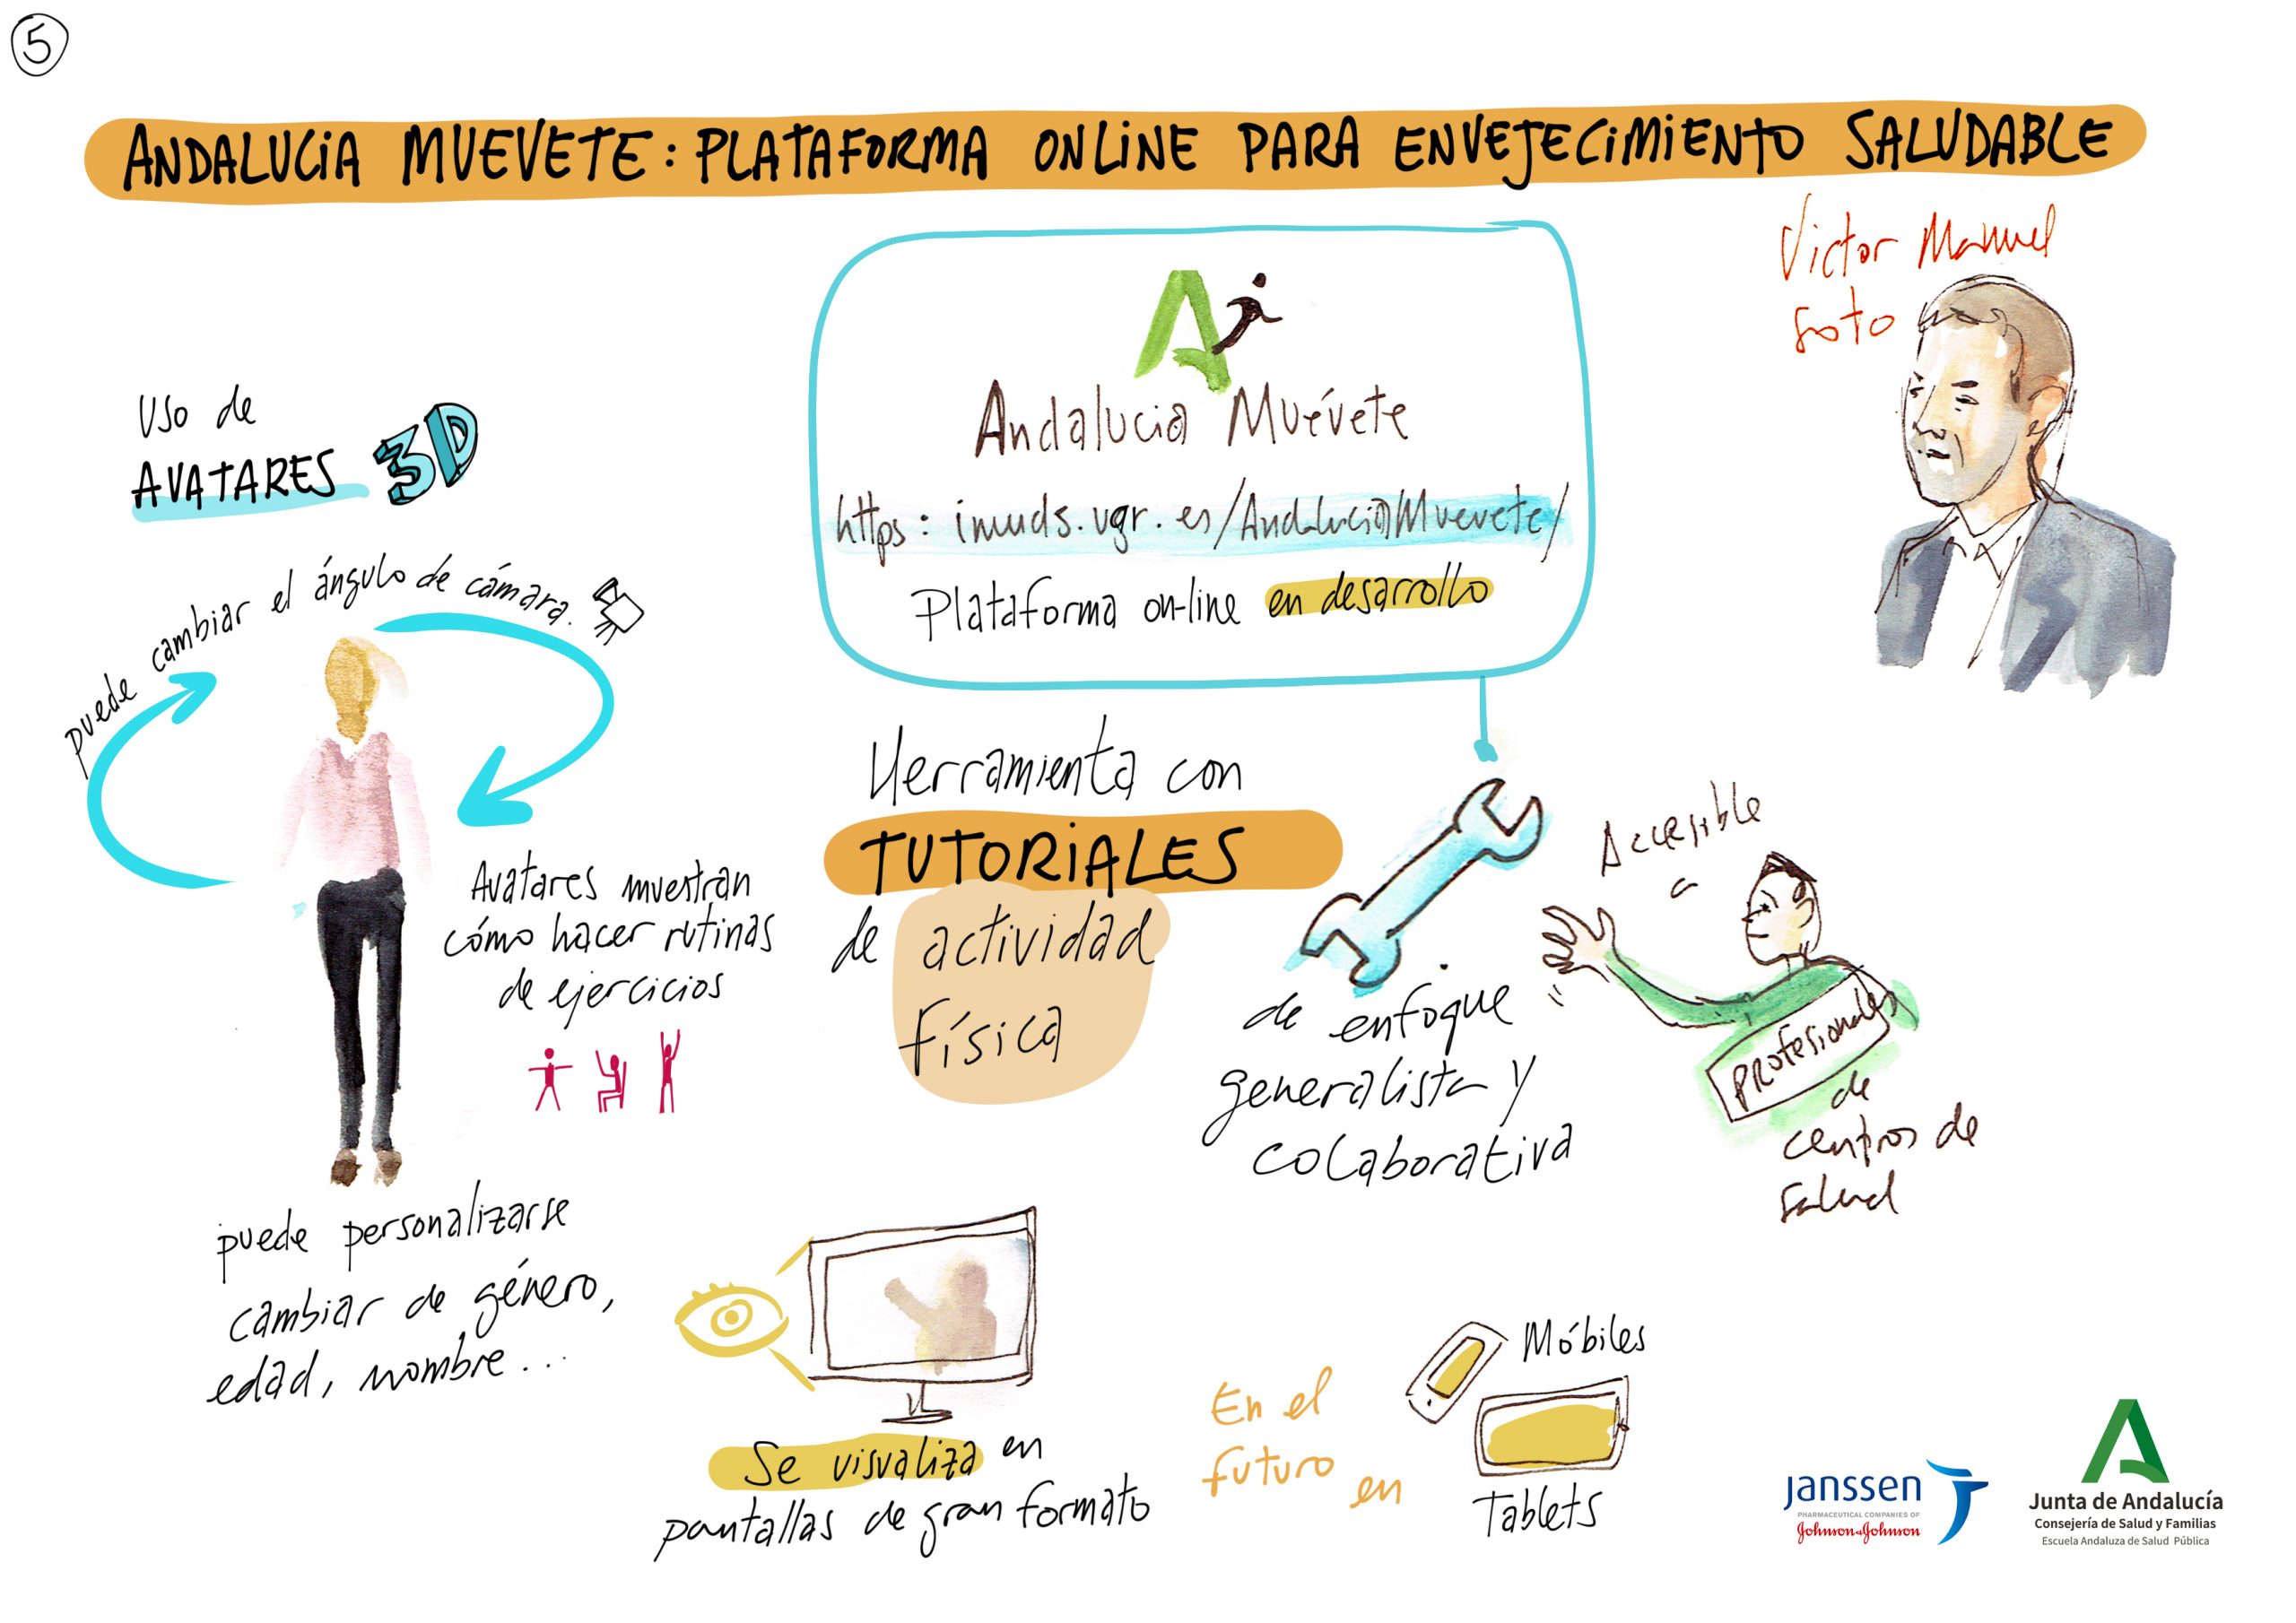 5
ANDALUCIA MUEVETE: PLATAFORMA ONLINE PARA ENVEJECIMIENTO SALUDABLE
Victor Manuel
Soto
Andalucia Muévete
https: imuds.ugr.es/AndaluciaMuevete/
Plataforma on-line en desarrollo
Uso de
AVATARES 3D
puede cambiar el ángulo de cámara.
Avatares muestran
cómo hacer rutinas
de ejercicios
puede personalizarse
cambiar de género,
edad, nombre...
Herramienta con
TUTORIALES
de actividad
física
de enfoque
generalista y
colaborativa
Accesible
a
PROfesionales
de
centros de
Salud
Se visualiza en
pantallas de gran formato
En el
futuro en
Móbiles
Tablets
janssen
PHARMACEUTICAL COMPANIES OF
Johnson & Johnson
Junta de Andalucía
Consejería de Salud y Familias
Escuela Andaluza de Salud Pública